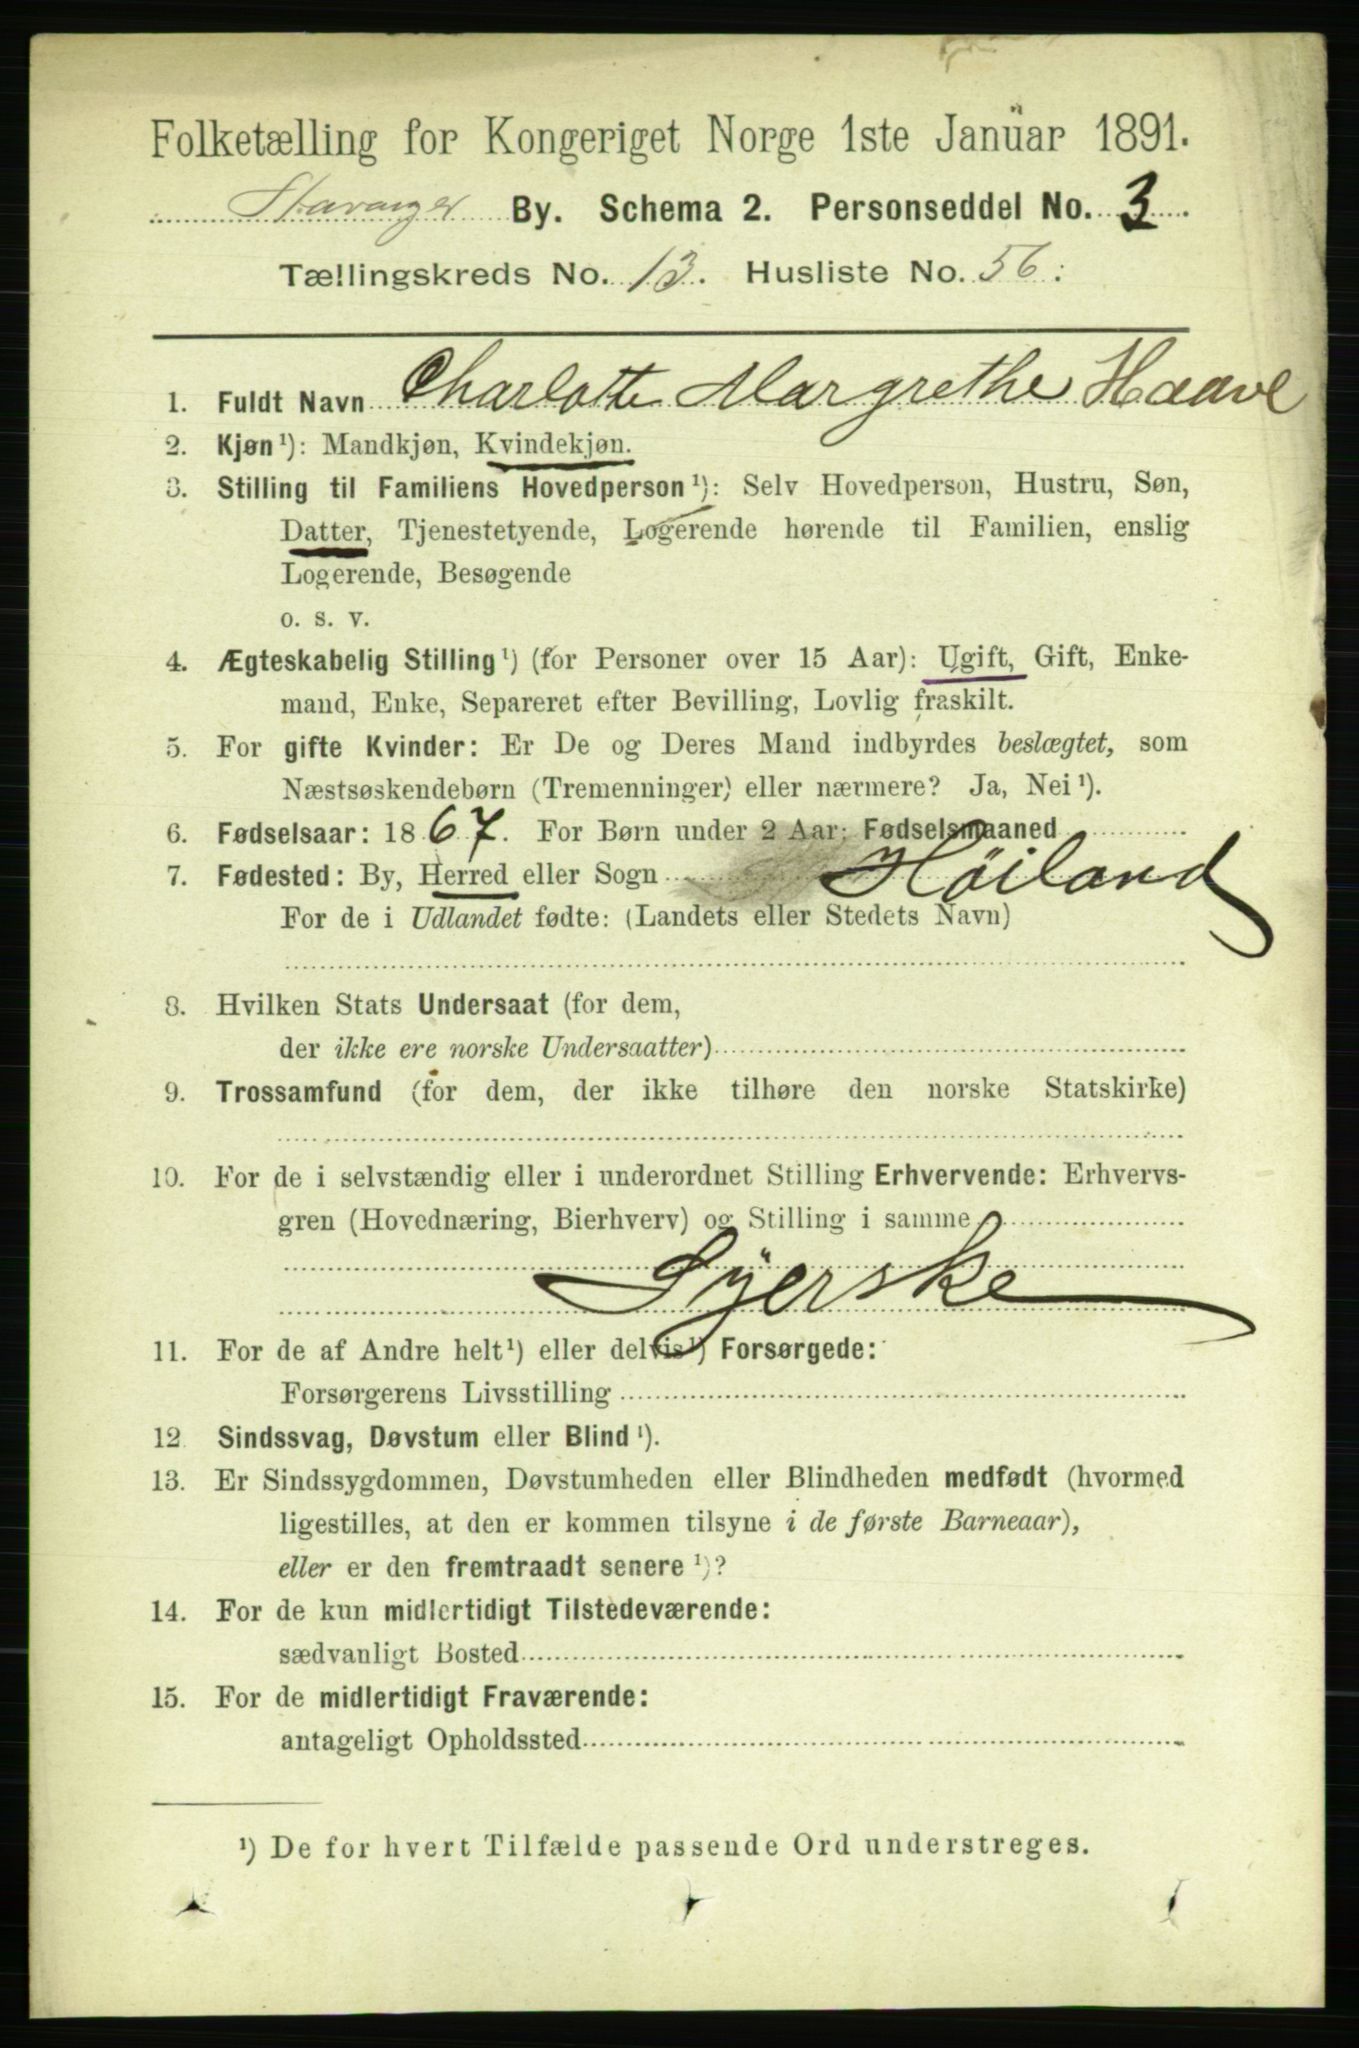 Folketælling for Kongeriget Norge 1ste Januar 1891.
Stavanger By. Schema 2. Personseddel No. 3
Tællingskreds No. 13. Husliste No. 56.
1. Fuldt Navn Charlotte Margrethe Haave
2. Kjøn¹): Mandkjøn, Kvindekjøn.
3. Stilling til Familiens Hovedperson¹): Selv Hovedperson, Hustru, Søn,
Datter, Tjenestetyende, Logerende hørende til Familien, enslig
Logerende, Besøgende
o. s. v.
4. Ægteskabelig Stilling¹) (for Personer over 15 Aar): Ugift, Gift, Enke-
mand, Enke, Separeret efter Bevilling, Lovlig fraskilt.
5. For gifte Kvinder: Er De og Deres Mand indbyrdes beslægtet, som
Næstsøskendebørn (Tremenninger) eller nærmere? Ja, Nei¹).
6. Fødselsaar: 1867. For Børn under 2 Aar: Fødselsmaaned
7. Fødested: By, Herred eller Sogn Höiland
For de i Udlandet fødte: (Landets eller Stedets Navn)
8. Hvilken Stats Undersaat (for dem,
der ikke ere norske Undersaatter)
9. Trossamfund (for dem, der ikke tilhøre den norske Statskirke)
10. For de i selvstændig eller i underordnet Stilling Erhvervende: Erhvervs-
gren (Hovednæring, Bierhverv) og Stilling i samme
Syerske
11. For de af Andre helt¹) eller delvis¹) Forsørgede:
Forsørgerens Livsstilling
12. Sindssvag, Døvstum eller Blind¹).
13. Er Sindssygdommen, Døvstumheden eller Blindheden medfødt (hvormed
ligestilles, at den er kommen tilsyne i de første Barneaar),
eller er den fremtraadt senere¹)?
14. For de kun midlertidigt Tilstedeværende:
sædvanligt Bosted
15. For de midlertidigt Fraværende:
antageligt Opholdssted
¹) De for hvert Tilfælde passende Ord understreges.